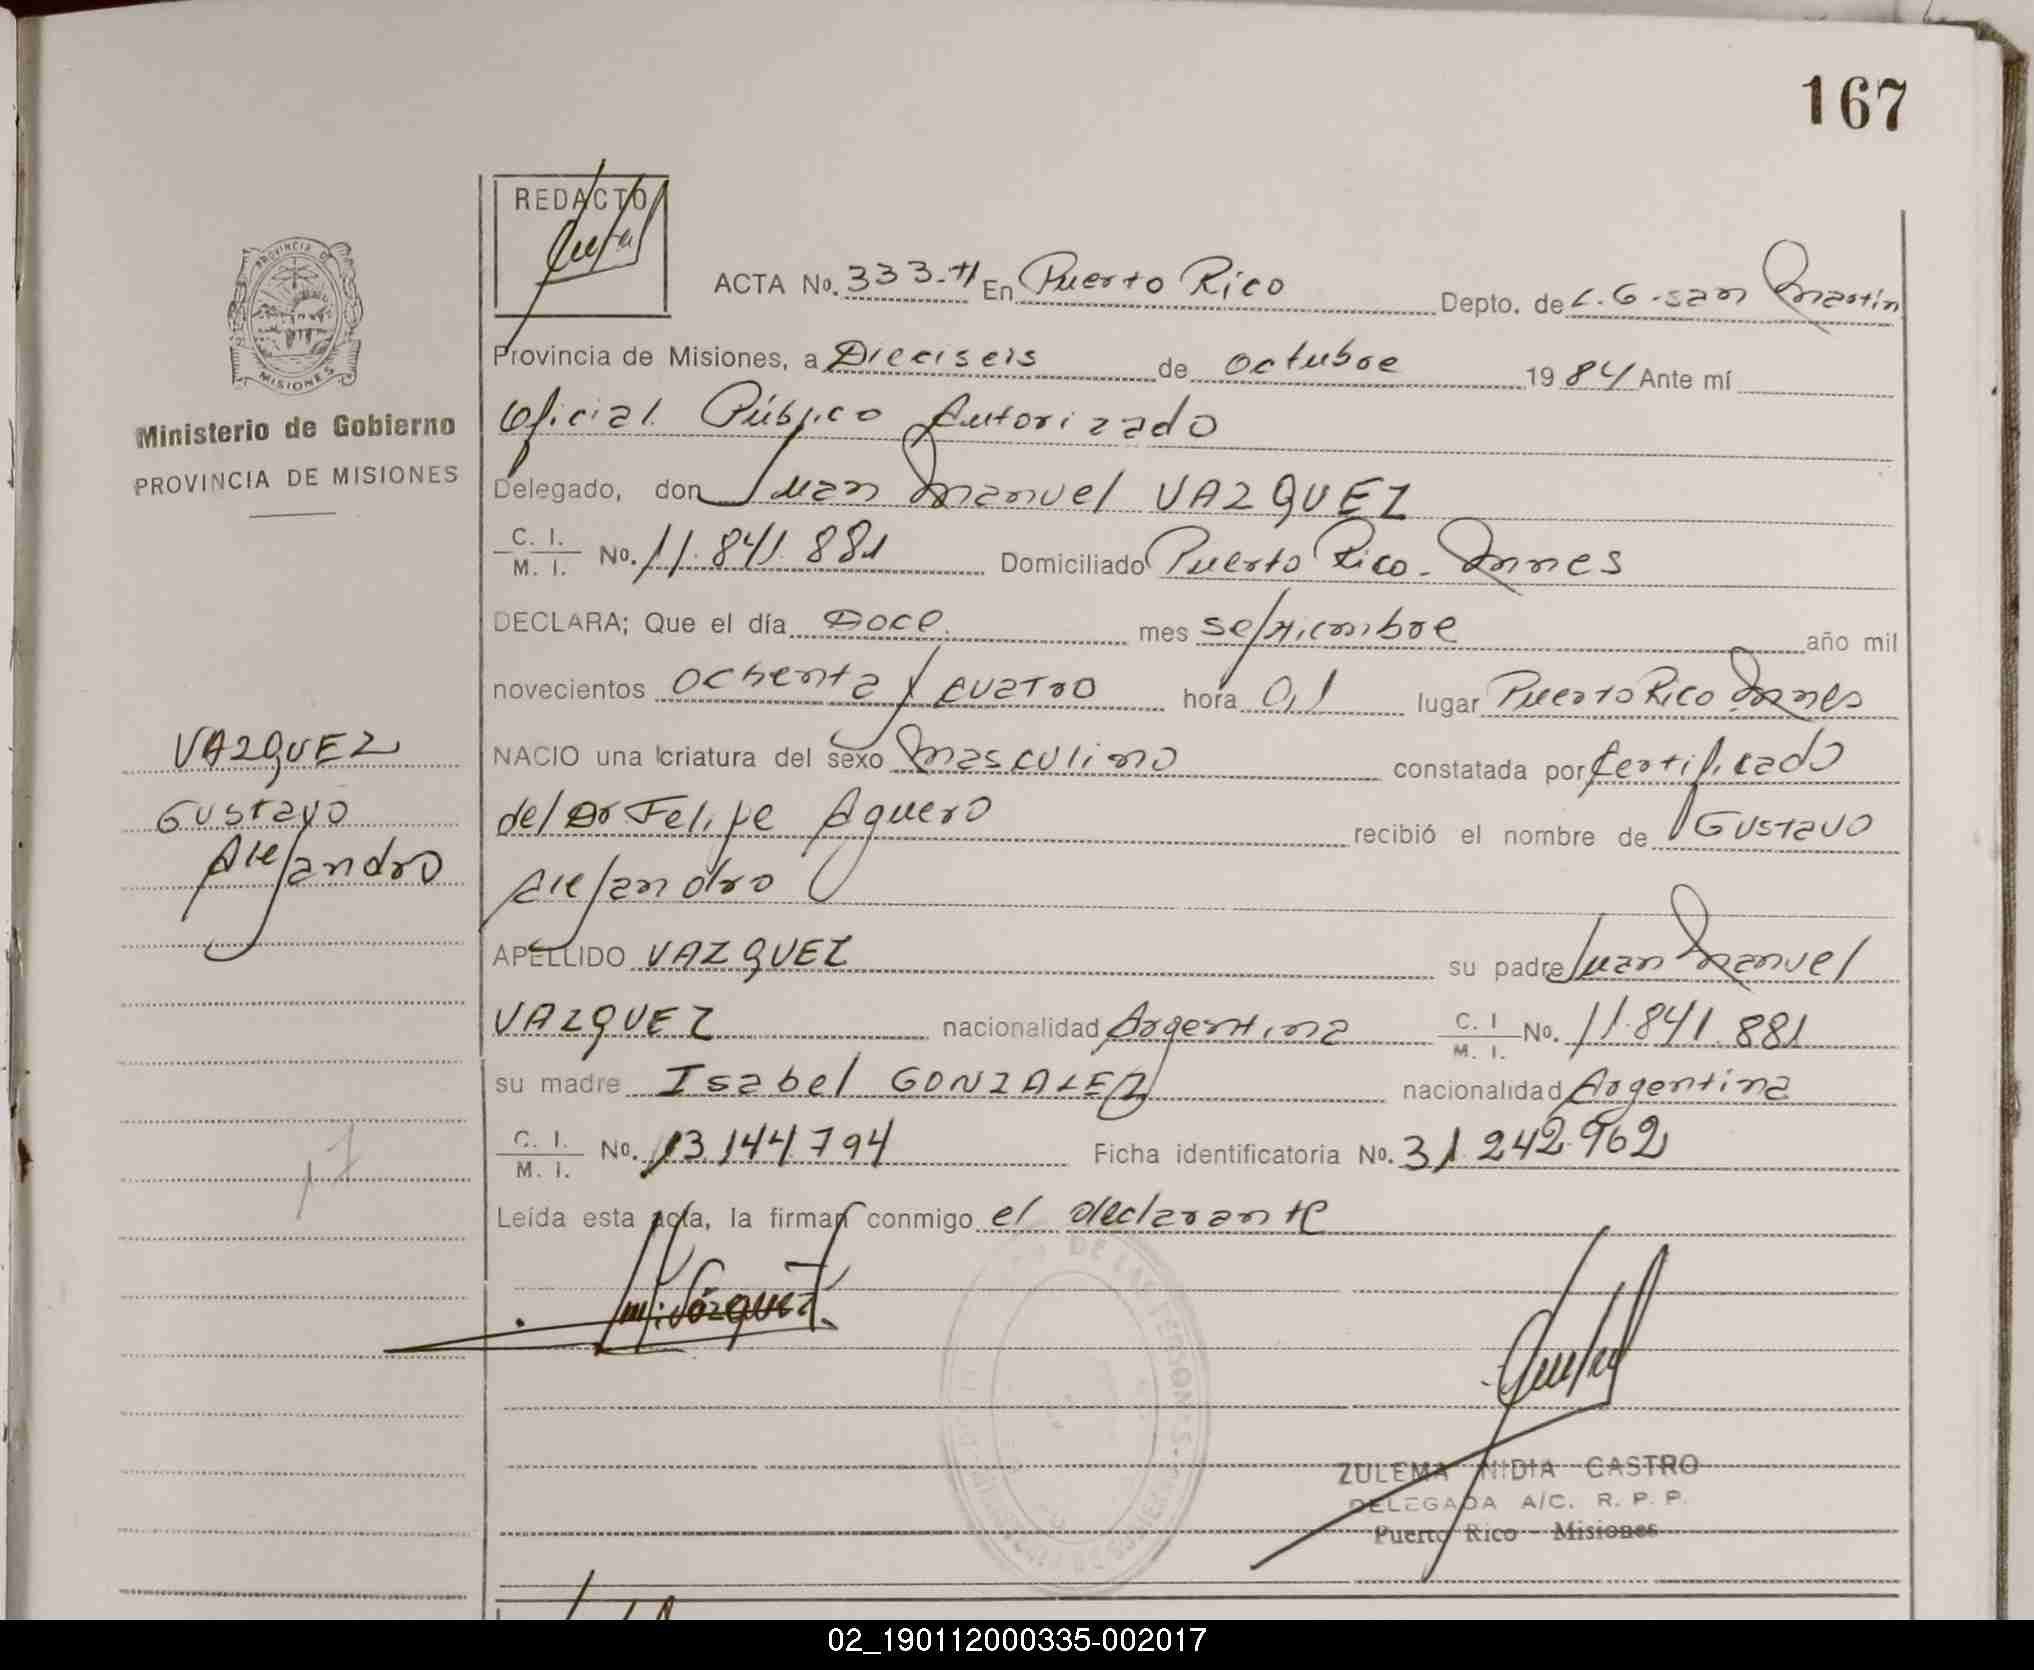 167
REDACTO
ACTA No. 333-H En Puerto Rico Depto. de L. G. San Martín
PROVINCIA DE
MISIONES
Provincia de Misiones, a Dieciseis de octubre 1984 Ante mí
Ministerio de Gobierno
PROVINCIA DE MISIONES
Oficial Público Autorizado
Delegado, don Juan Manuel VAZQUEZ
C. I.
M. I. No. 11.841.881 Domiciliado Puerto Rico - Mnes
DECLARA; Que el día Doce mes septiembre año mil
novecientos ochenta y cuatro hora 0,1 lugar Puerto Rico Mnes
VAZQUEZ
Gustavo
Alejandro
NACIO una criatura del sexo Masculino constatada por Certificado
del Dr Felipe Aguero recibió el nombre de Gustavo
Alejandro
APELLIDO VAZQUEZ su padre Juan Manuel
VAZQUEZ nacionalidad Argentina C. I M. I. No. 11.841.881
su madre Isabel GONZALEZ nacionalidad Argentina
C. I.
M. I. No. 13.144.794 Ficha identificatoria No. 31.242.962
Leída esta acta, la firman conmigo el declarante
M. Vázquez
DE LAS PERSONAS
ZULEMA NIDIA CASTRO
DELEGADA A/C. R. P. P.
Puerto Rico - Misiones
02_190112000335-002017